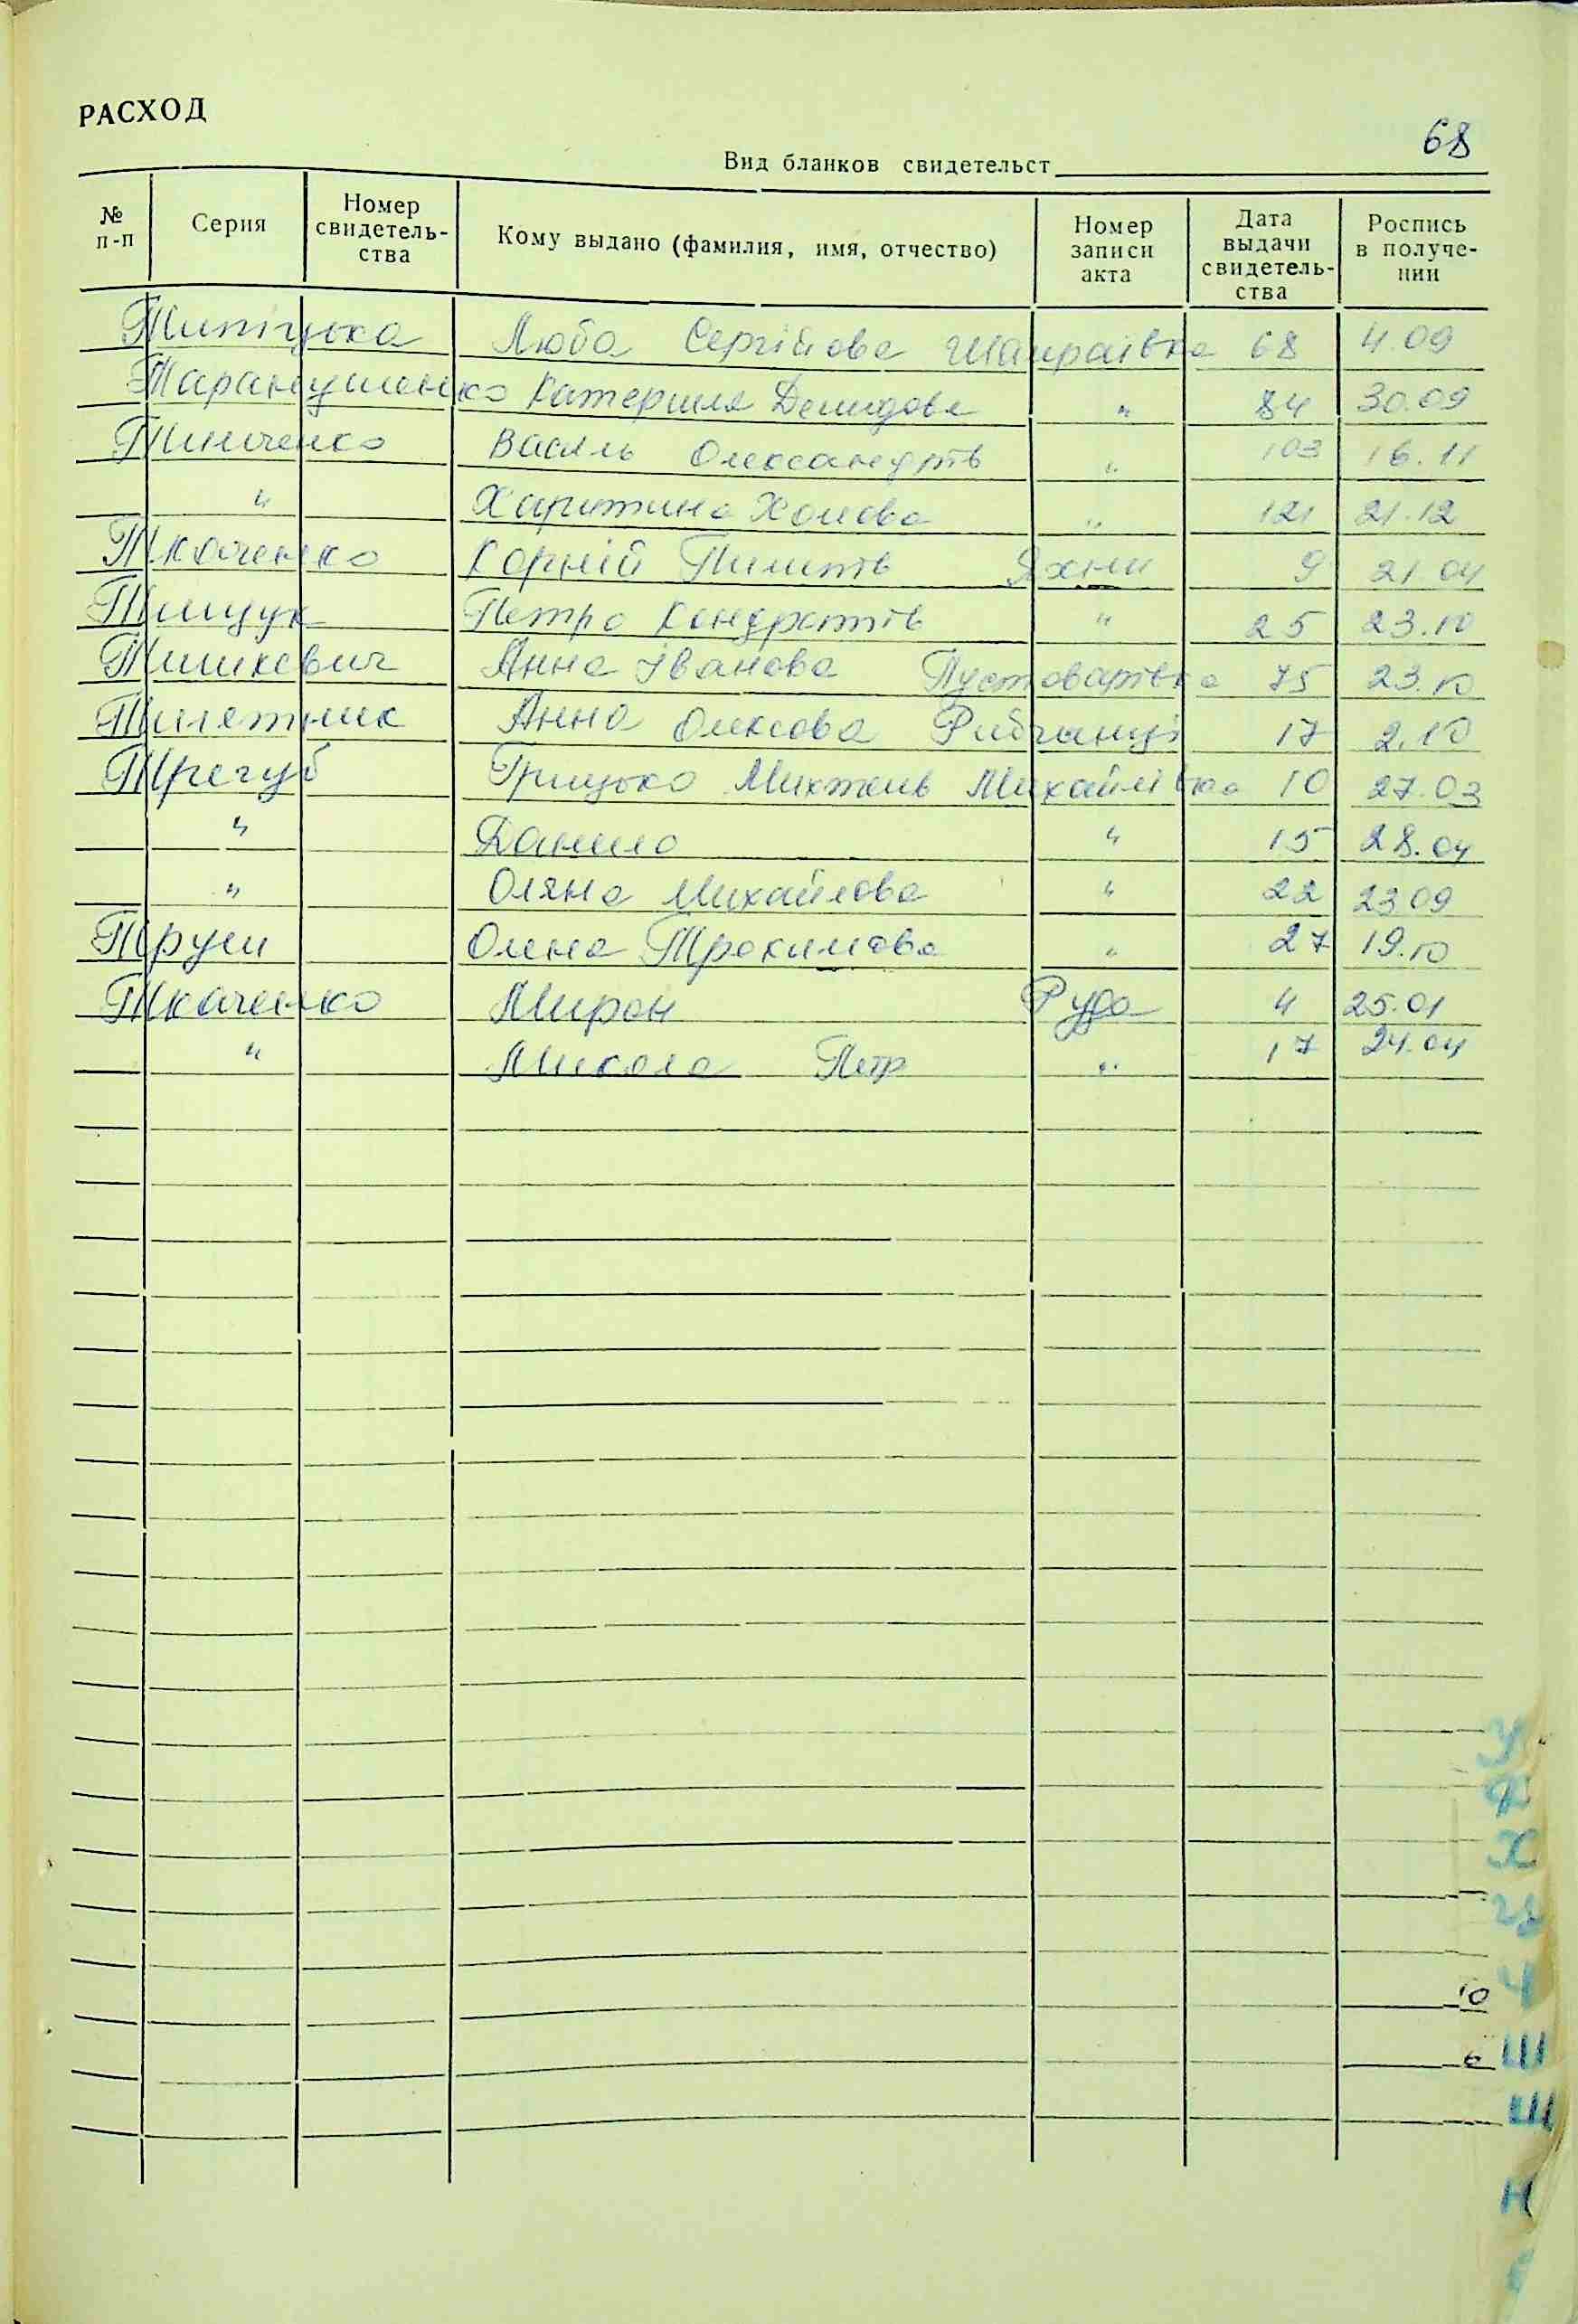 РАСХОД
68
Вид бланков свидетельст
№ п-п Серия Номер свидетель-ства Кому выдано (фамилия, имя, отчество) Номер записи акта Дата выдачи свидетель-ства Роспись в получе-нии
Люба Сергійова Шамраївка 68 4.09
Таранушенко Катерина Демидова " 84 30.09
Тимченко Василь Олександрів " 103 16.11
" Харитина Хомова " 121 21.12
Ткаченко Корній Пилипів Яхни 9 21.04
Тищук Петро Кондратів " 25 23.10
Тишкевич Анна Іванова Пустоварівка 75 23.10
Анна Олексова Рибчинці 17 2.10
Трегуб Грицько Михайлівка 10 27.03
" Данило " 15 28.04
" Оляна Михайлова " 22 23 09
Труш Олена Трохимова " 27 19.10
Ткаченко Мирон Руда 4 25.01
" Микола Петр " 17 24.04
У
Ф
Х
Ц
10 Ч
6 Ш
Щ
Н